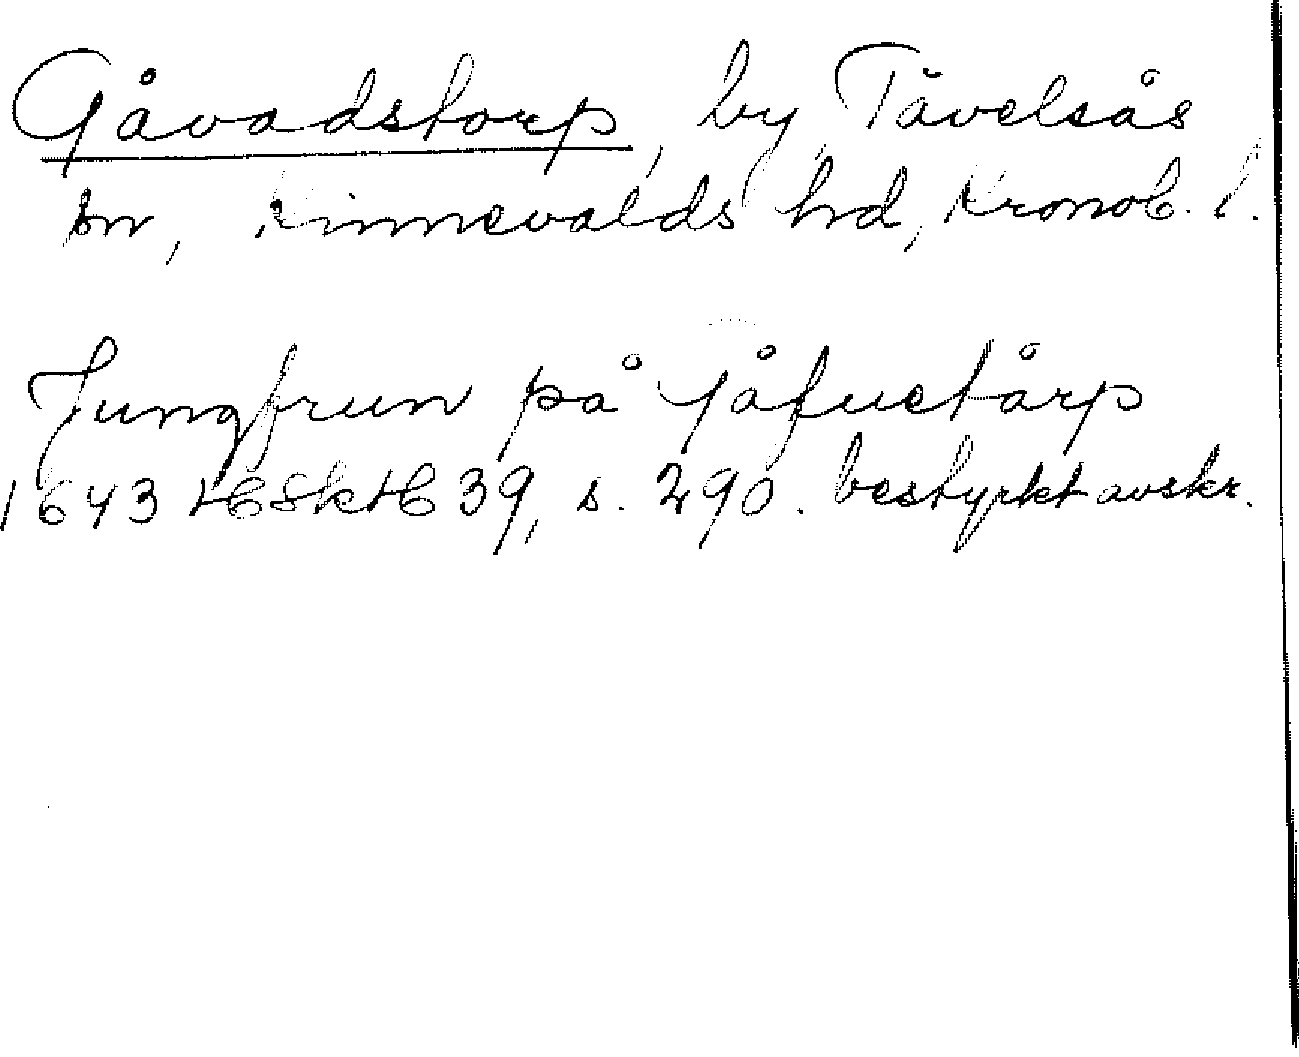 Gåvadstorp, by, Tävelsås
sn, Kinnevalds hd, Kronob. l.
Jungfrun på Gåfuetårp
1643 HSkH 39, s. 290. bestyrkt avskr.